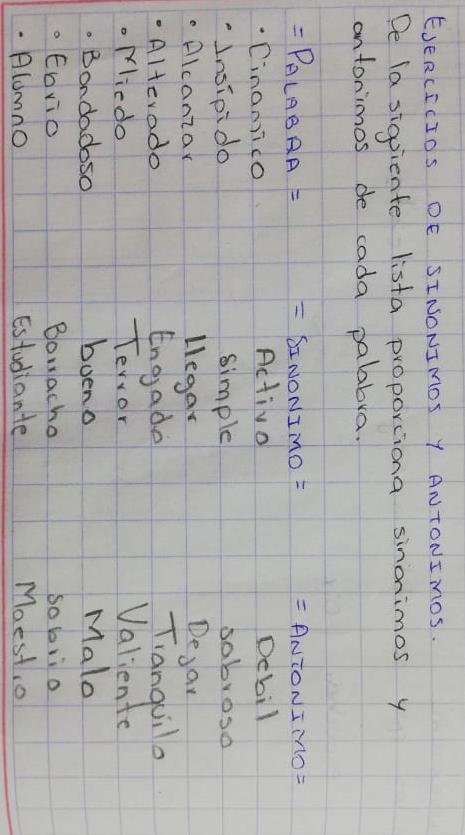 EJERCICIOS DE SINONIMOS Y ANTONIMOS.
De la siguiente lista proporciona sinonimos y
antonimos de cada palabra.
= PALABRA = = SINONIMO = = ANTONIMO =
• Dinamico Activo Debil
• Insípido simple sabroso
• Alcanzar llegar Dejar
• Alterado Enojado Tranquilo
• Miedo Terror Valiente
• Bondadoso bueno Malo
• Ebrio Borracho sobrio
• Alumno Estudiante Maestro